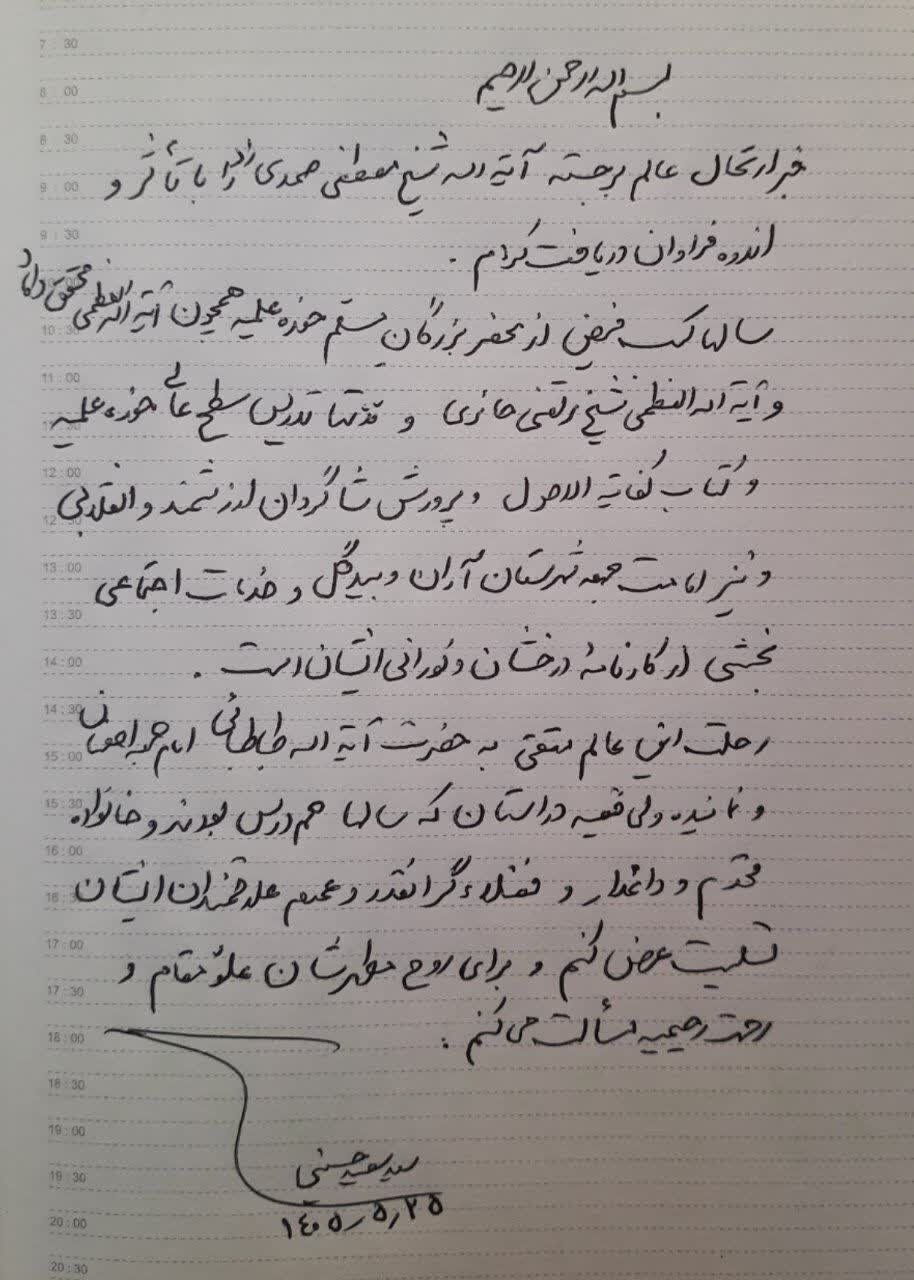 بسم اله الرحمن الرحیم
خبر ارتحال عالم برجسته آیة اله شیخ مصطفی صمدی را با تأثر و
اندوه فراوان دریافت کردم .
سالها کسب فیض از محضر بزرگان مسلم حوزه علمیه همچون آیة اله العظمی محقق داماد
و آیة اله العظمی شیخ مرتضی حائری و مدتها تدریس سطح عالی حوزه علمیه
و کتاب کفایة الاصول و پرورش شاگردان ارزشمند و انقلابی
و نیز امامت جمعه شهرستان آران و بیدگل و خدمات اجتماعی
بخشی از کارنامهٔ درخشان و نورانی ایشان است .
رحلت این عالم متقی به حضرت آیة اله طباطبائی امام جمعه اصفهان
و نماینده ولی فقیه در استان که سالها هم درس بودند و خانواده
محترم و داغدار و فضلاء گرانقدر و عموم علاقمندان ایشان
تسلیت عرض کنم و برای روح مطهرشان علوّ مقام و
رحمت رحیمیه مسألت می کنم .
سید سعید حسینی
۱۴۰۵٫۵٫۲۵
7 : 30
8 : 00
8 : 30
9 : 00
9 : 30
10 : 30
11 : 00
12 : 00
12 : 30
13 : 00
13 : 30
14 : 00
14 : 30
15 : 00
15 : 30
16 : 00
17 : 00
17 : 30
18 : 00
18 : 30
19 : 00
19 : 30
20 : 00
20 : 30